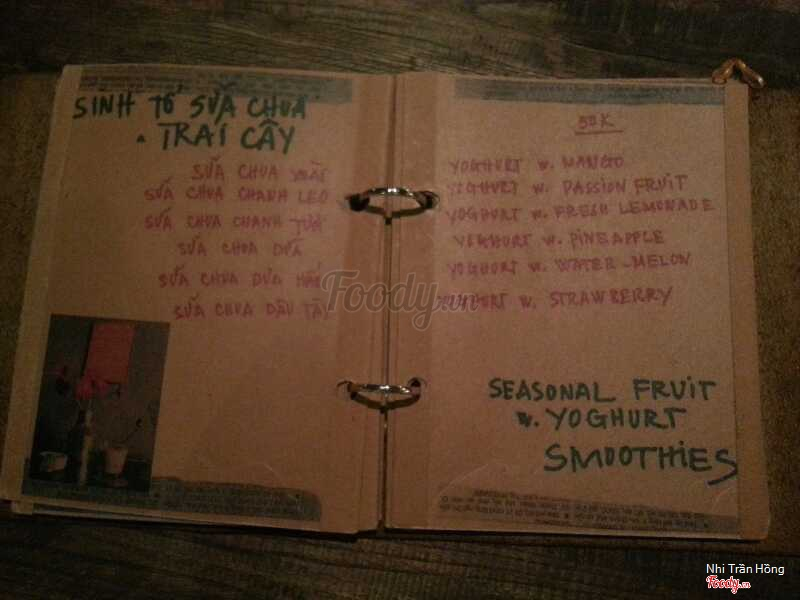 SINH TỐ SỮA CHUA
TRÁI CÂY
SỮA CHUA XOÀI
SỮA CHUA CHANH LEO
SỮA CHUA CHANH TƯƠI
SỮA CHUA DỨA
SỮA CHUA DƯA HẤU
SỮA CHUA DÂU TÂY
50K
YOGHURT w. MANGO
YOGHURT w. PASSION FRUIT
YOGHURT w. FRESH LEMONADE
YOGHURT w. PINEAPPLE
YOGHURT w. WATER-MELON
YOGHURT w. STRAWBERRY
SEASONAL FRUIT
w. YOGHURT
SMOOTHIES
Foody.vn
Nhi Trần Hồng
Foody.vn